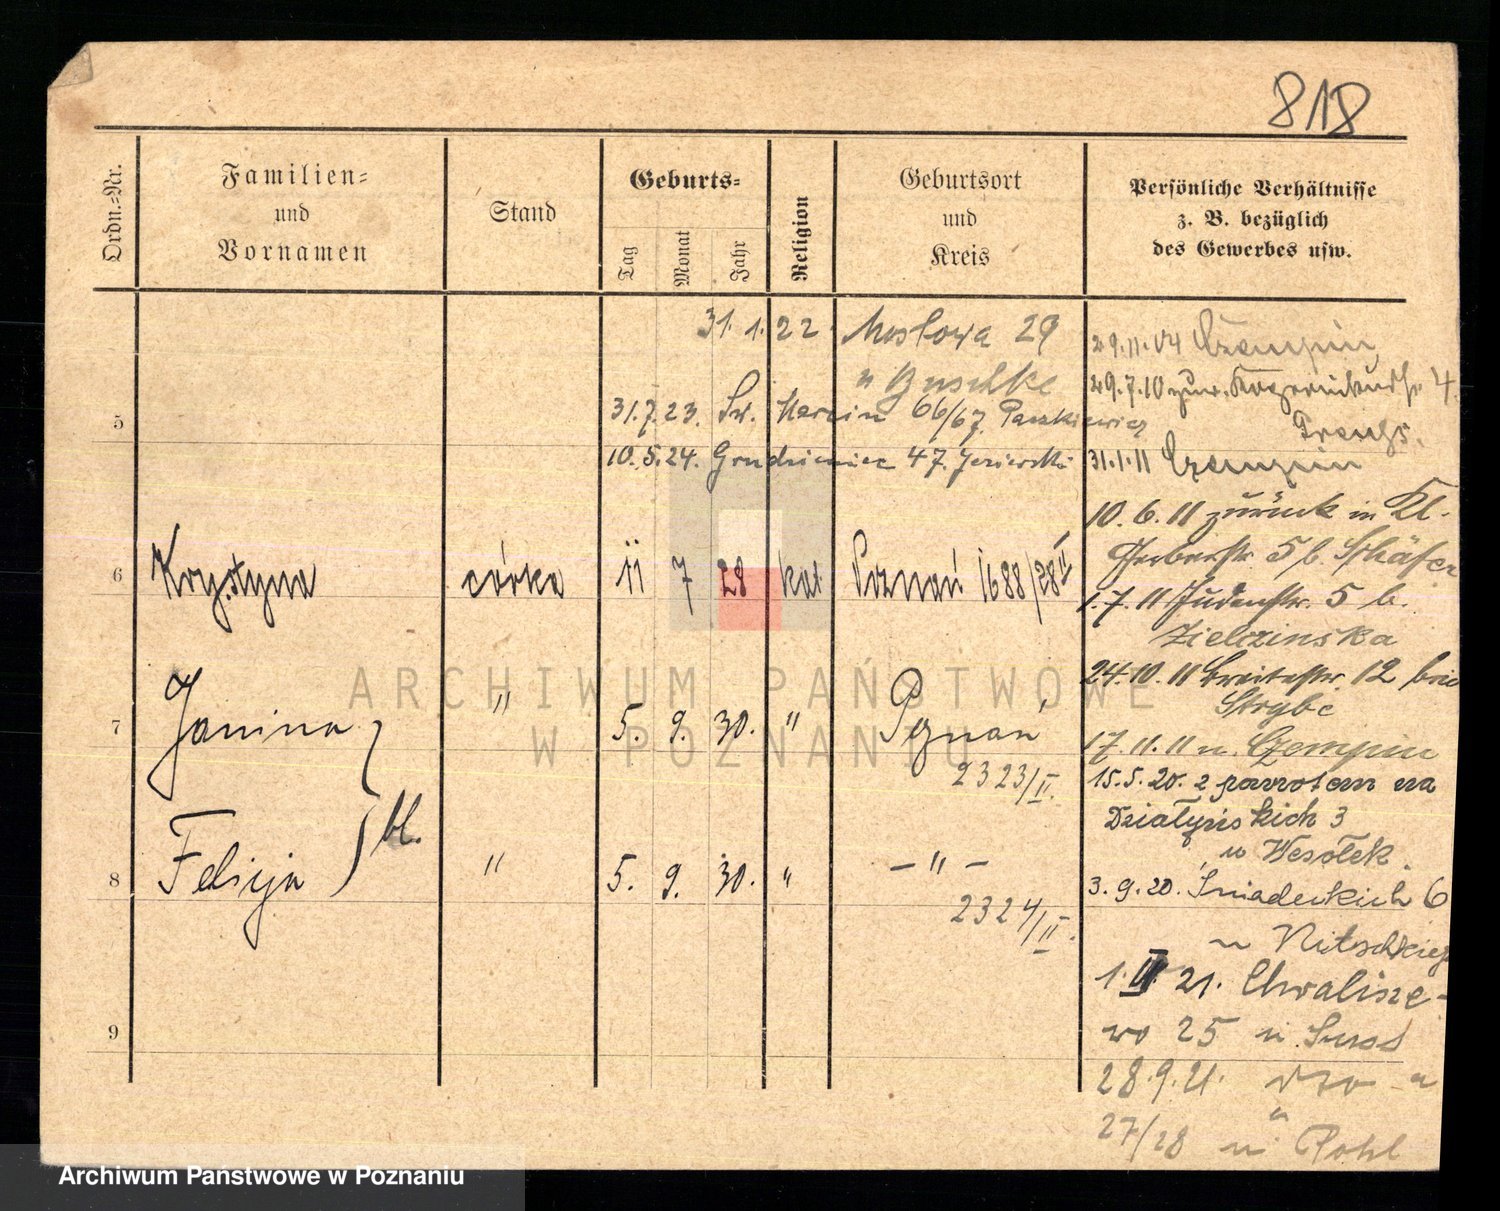 818
Ordn.-Nr.
Familien-
und
Vornamen
Stand
Geburts-
Tag
Monat
Jahr
Religion
Geburtsort
und
Kreis
Persönliche Verhältnisse
z. B. bezüglich
des Gewerbes usw.
31. 1. 22. Mostowa 29
u Buschke
31.7.23. Św. Marcin 66/67. Paszkiewicz
5
10.5.24. Grudzieniec 47. Jezierski
6 Krystyna córka 11 7 28 kat Poznań 1688/28 II
7 Janina " 5. 9. 30. " Poznań
2323/II.
bl.
8 Felicja " 5. 9. 30. " - " -
2324/II.
9
29.11.04 Czempin
29.7.10 zur. 4.
31.1.11 Czempin
10.6.11 zurück in Kl.
Gerberstr. 5 b. Schäfer
1.7.11 Judenstr. 5 b.
Zielezinska
24.10.11 Breitestr. 12 bei
Strybe
17.11.11 n. Czempin
15.5.20. z powrotem na
Działyńskich 3
u Wesołek.
3.9.20. Śniadeckich 6
u
1. 21. Chwalisze-
wo 25 u
28.9.21.
27/28 u Pohl
ARCHIWUM PAŃSTWOWE
W POZNANIU
Archiwum Państwowe w Poznaniu